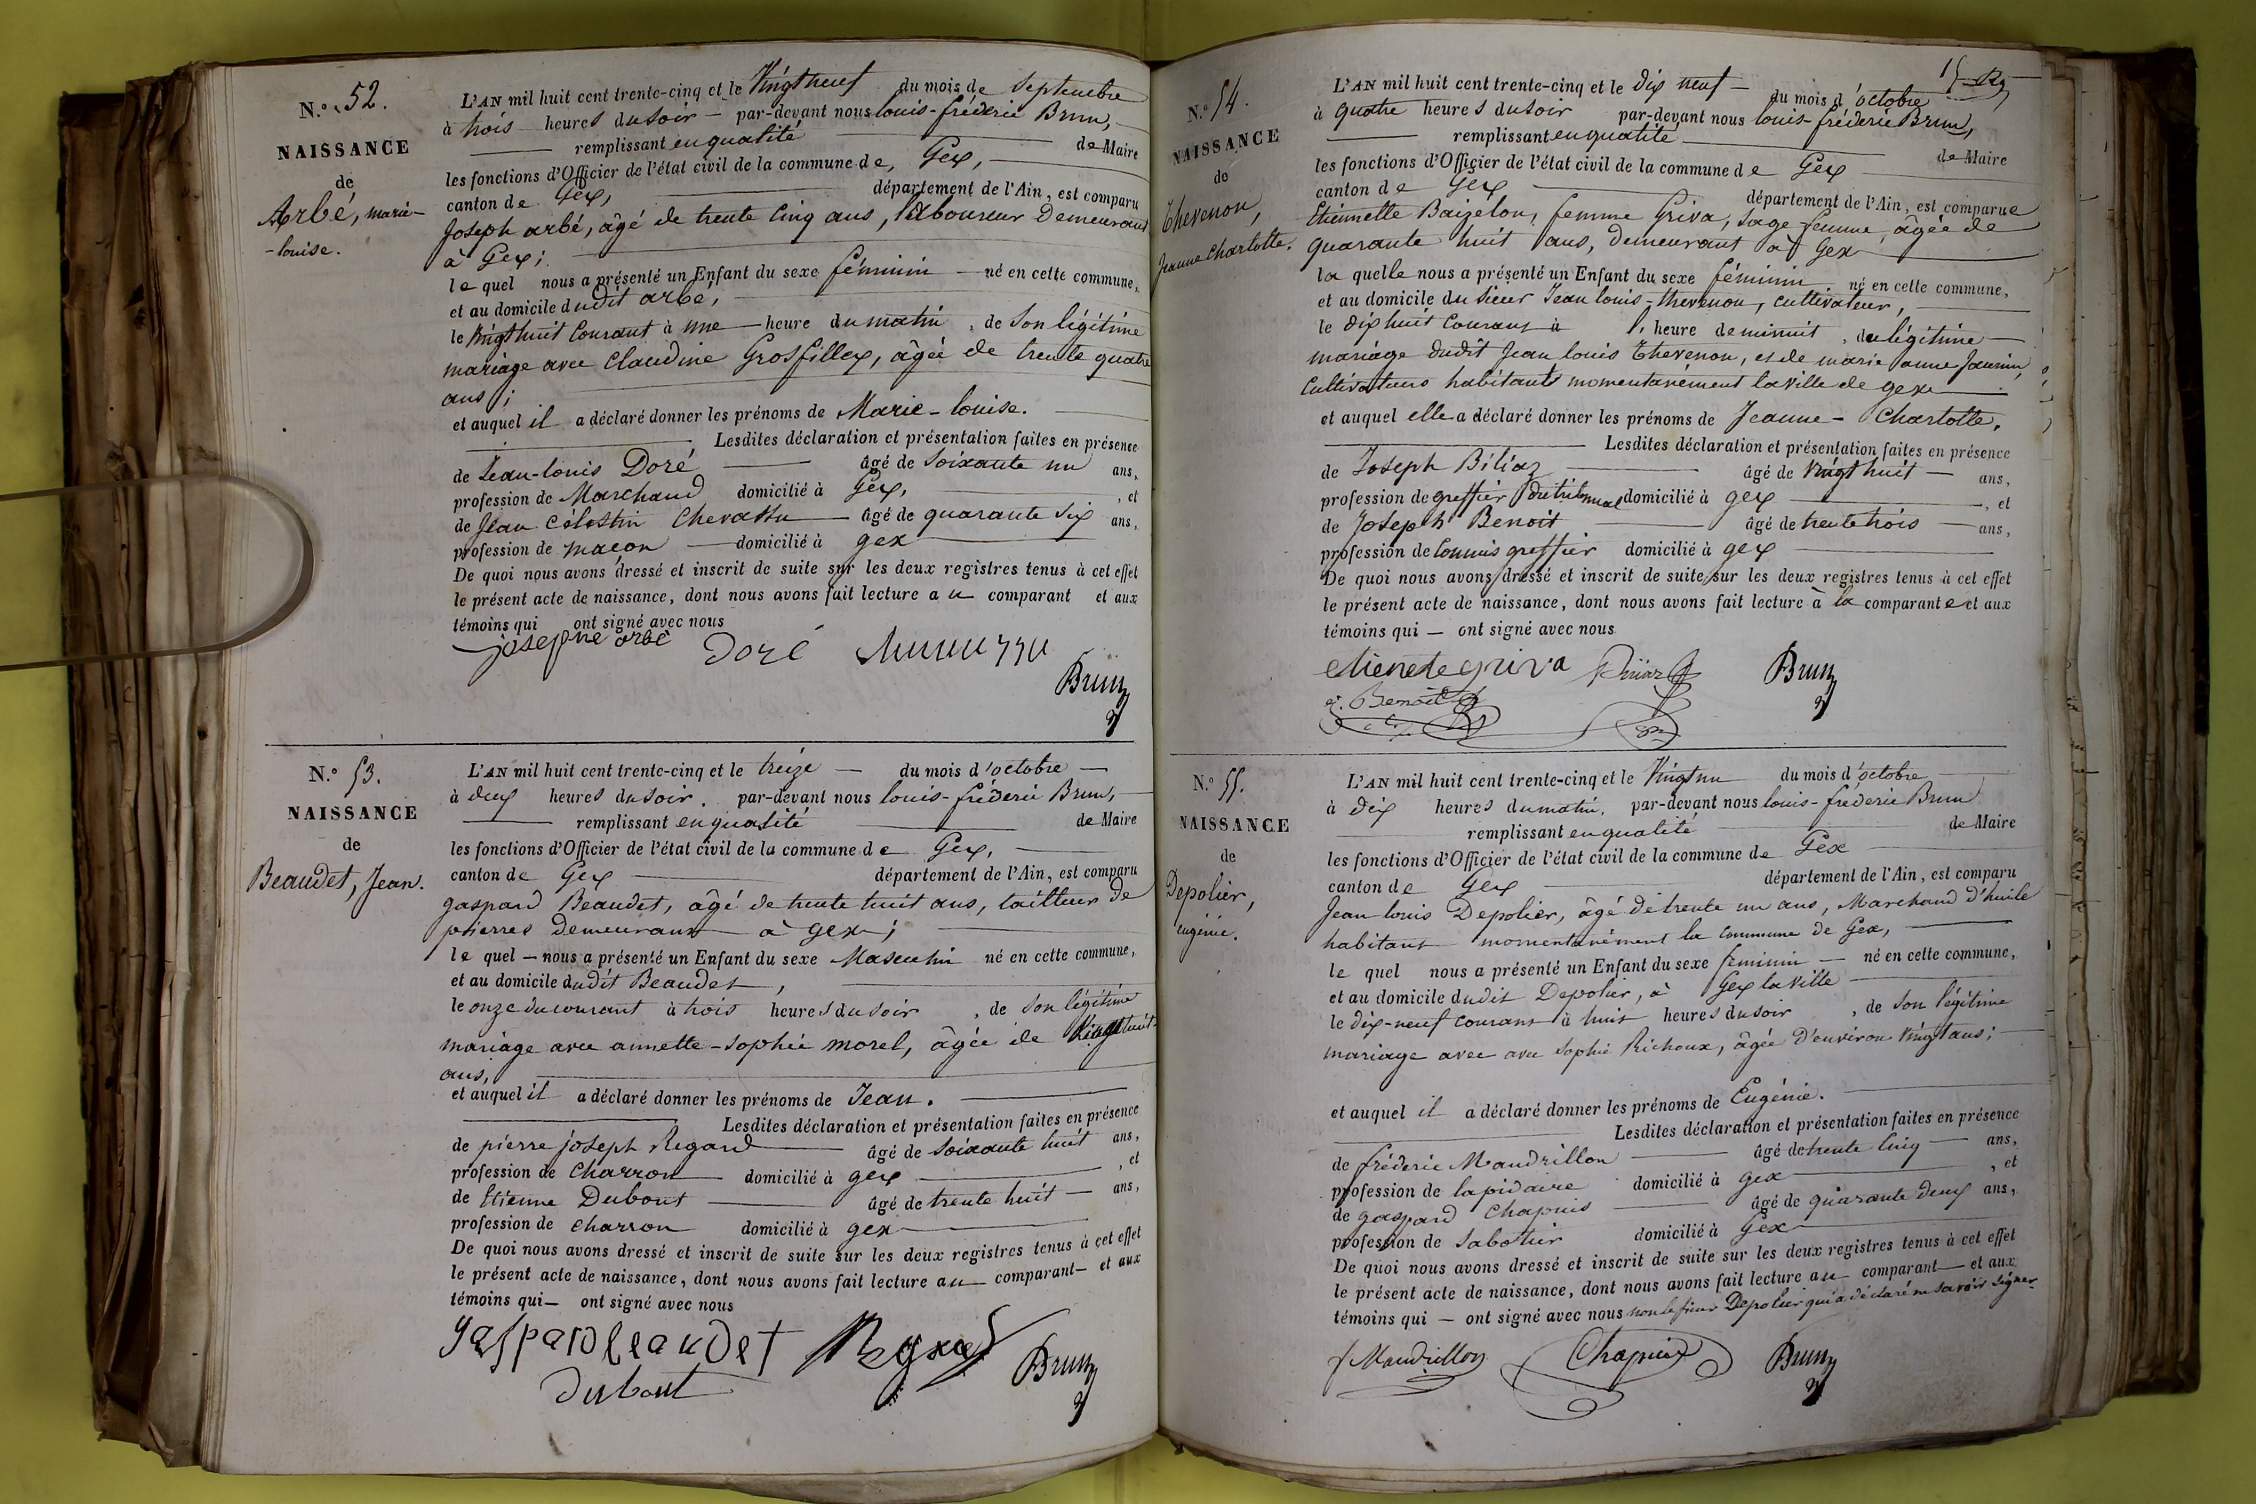 N.º 52.
NAISSANCE
de
Arbé, marie-
-louise.
L'AN mil huit cent trente-cinq et le Vingt neuf du mois de Septembre
à trois heures du soir par-devant nous louis-fréderic Brun,
remplissant en qualité de Maire
les fonctions d'Officier de l'état civil de la commune de Gex,
canton de Gex, département de l'Ain, est comparu
Joseph arbé, âgé de trente cinq ans, laboureur demeurant
à Gex;
le quel nous a présenté un Enfant du sexe féminin né en cette commune,
et au domicile dudit arbé,
le vingt huit courant à une heure du matin, de son légitime
mariage avec Claudine Grosfilley, âgée de trente quatre
ans;
et auquel il a déclaré donner les prénoms de Marie-louise.
Lesdites déclaration et présentation faites en présence
de Jean-louis Doré âgé de soixante un ans,
profession de Marchand domicilié à Gex, et
de Jean Célestin Chevassu âgé de quarante six ans,
profession de maçon domicilié à gex
De quoi nous avons dressé et inscrit de suite sur les deux registres tenus à cet effet
le présent acte de naissance, dont nous avons fait lecture au comparant et aux
témoins qui ont signé avec nous
josephe arbé Doré
Brun
N.º 53.
NAISSANCE
de
Beaudet, Jean.
L'AN mil huit cent trente-cinq et le treize du mois d'octobre
à deux heures du soir. par-devant nous louis-fréderic Brun,
remplissant en qualité de Maire
les fonctions d'Officier de l'état civil de la commune de Gex,
canton de Gex département de l'Ain, est comparu
gaspard Beaudet, âgé de trente huit ans, tailleur de
pierres demeurant à gex;
le quel nous a présenté un Enfant du sexe Masculin né en cette commune,
et au domicile dudit Beaudet,
le onze du courant à trois heures du soir, de son légitime
mariage avec annette-sophie morel, âgée de vingt huit
ans,
et auquel il a déclaré donner les prénoms de Jean.
Lesdites déclaration et présentation faites en présence
de pierre joseph Regard âgé de soixante huit ans,
profession de Charron domicilié à gex, et
de Etienne Dubout âgé de trente huit ans,
profession de charron domicilié à gex
De quoi nous avons dressé et inscrit de suite sur les deux registres tenus à cet effet
le présent acte de naissance, dont nous avons fait lecture au comparant et aux
témoins qui ont signé avec nous
gaspard beaudet Regard
Brun
dubout
15
N.º 54.
NAISSANCE
de
Thevenon,
Jeanne Charlotte.
L'AN mil huit cent trente-cinq et le dix neuf du mois d'octobre
à quatre heures du soir par-devant nous louis-fréderic Brun,
remplissant en qualité de Maire
les fonctions d'Officier de l'état civil de la commune de Gex
canton de Gex département de l'Ain, est comparue
Etiennette Baizelon, femme Griva, sage-femme, âgée de
quarante huit ans, demeurant à Gex
la quelle nous a présenté un Enfant du sexe féminin né en cette commune,
et au domicile du sieur Jean louis-thevenon, cultivateur,
le dix huit courant à l'heure de minuit, du légitime
mariage dudit Jean louis Thevenon, et de marie anne Jannin
Cultivateurs habitants momentanément la ville de gex
et auquel elle a déclaré donner les prénoms de Jeanne-Charlotte.
Lesdites déclaration et présentation faites en présence
de Joseph Biliaz âgé de vingt huit ans,
profession de greffier du tribunal domicilié à gex, et
de Joseph Benoit âgé de trente trois ans,
profession de commis greffier domicilié à gex
De quoi nous avons dressé et inscrit de suite sur les deux registres tenus à cet effet
le présent acte de naissance, dont nous avons fait lecture à la comparante et aux
témoins qui ont signé avec nous
etienete griva Brun
j. Benoit
N.º 55.
NAISSANCE
de
Depolier,
eugénie.
L'AN mil huit cent trente-cinq et le vingt un du mois d'octobre
à dix heures du matin. par-devant nous louis-fréderic Brun
remplissant en qualité de Maire
les fonctions d'Officier de l'état civil de la commune de Gex
canton de Gex département de l'Ain, est comparu
Jean louis Depolier, âgé de trente un ans, Marchand d'huile
habitant momentanément la commune de Gex,
le quel nous a présenté un Enfant du sexe féminin né en cette commune,
et au domicile dudit Depolier, à Gex la ville
le dix-neuf courant à huit heures du soir, de son légitime
mariage avec avec sophie Richoux, âgée d'environ vingt ans;
et auquel il a déclaré donner les prénoms de Eugénie.
Lesdites déclaration et présentation faites en présence
de fréderic Mandrillon âgé de trente cinq ans,
profession de lapidaire domicilié à gex, et
de gaspard Chapuis âgé de quarante deux ans,
profession de sabotier domicilié à Gex
De quoi nous avons dressé et inscrit de suite sur les deux registres tenus à cet effet
le présent acte de naissance, dont nous avons fait lecture au comparant et aux
témoins qui ont signé avec nous non le sieur Depolier qui a déclaré ne savoir signer.
f Mandrillon Chapuis Brun